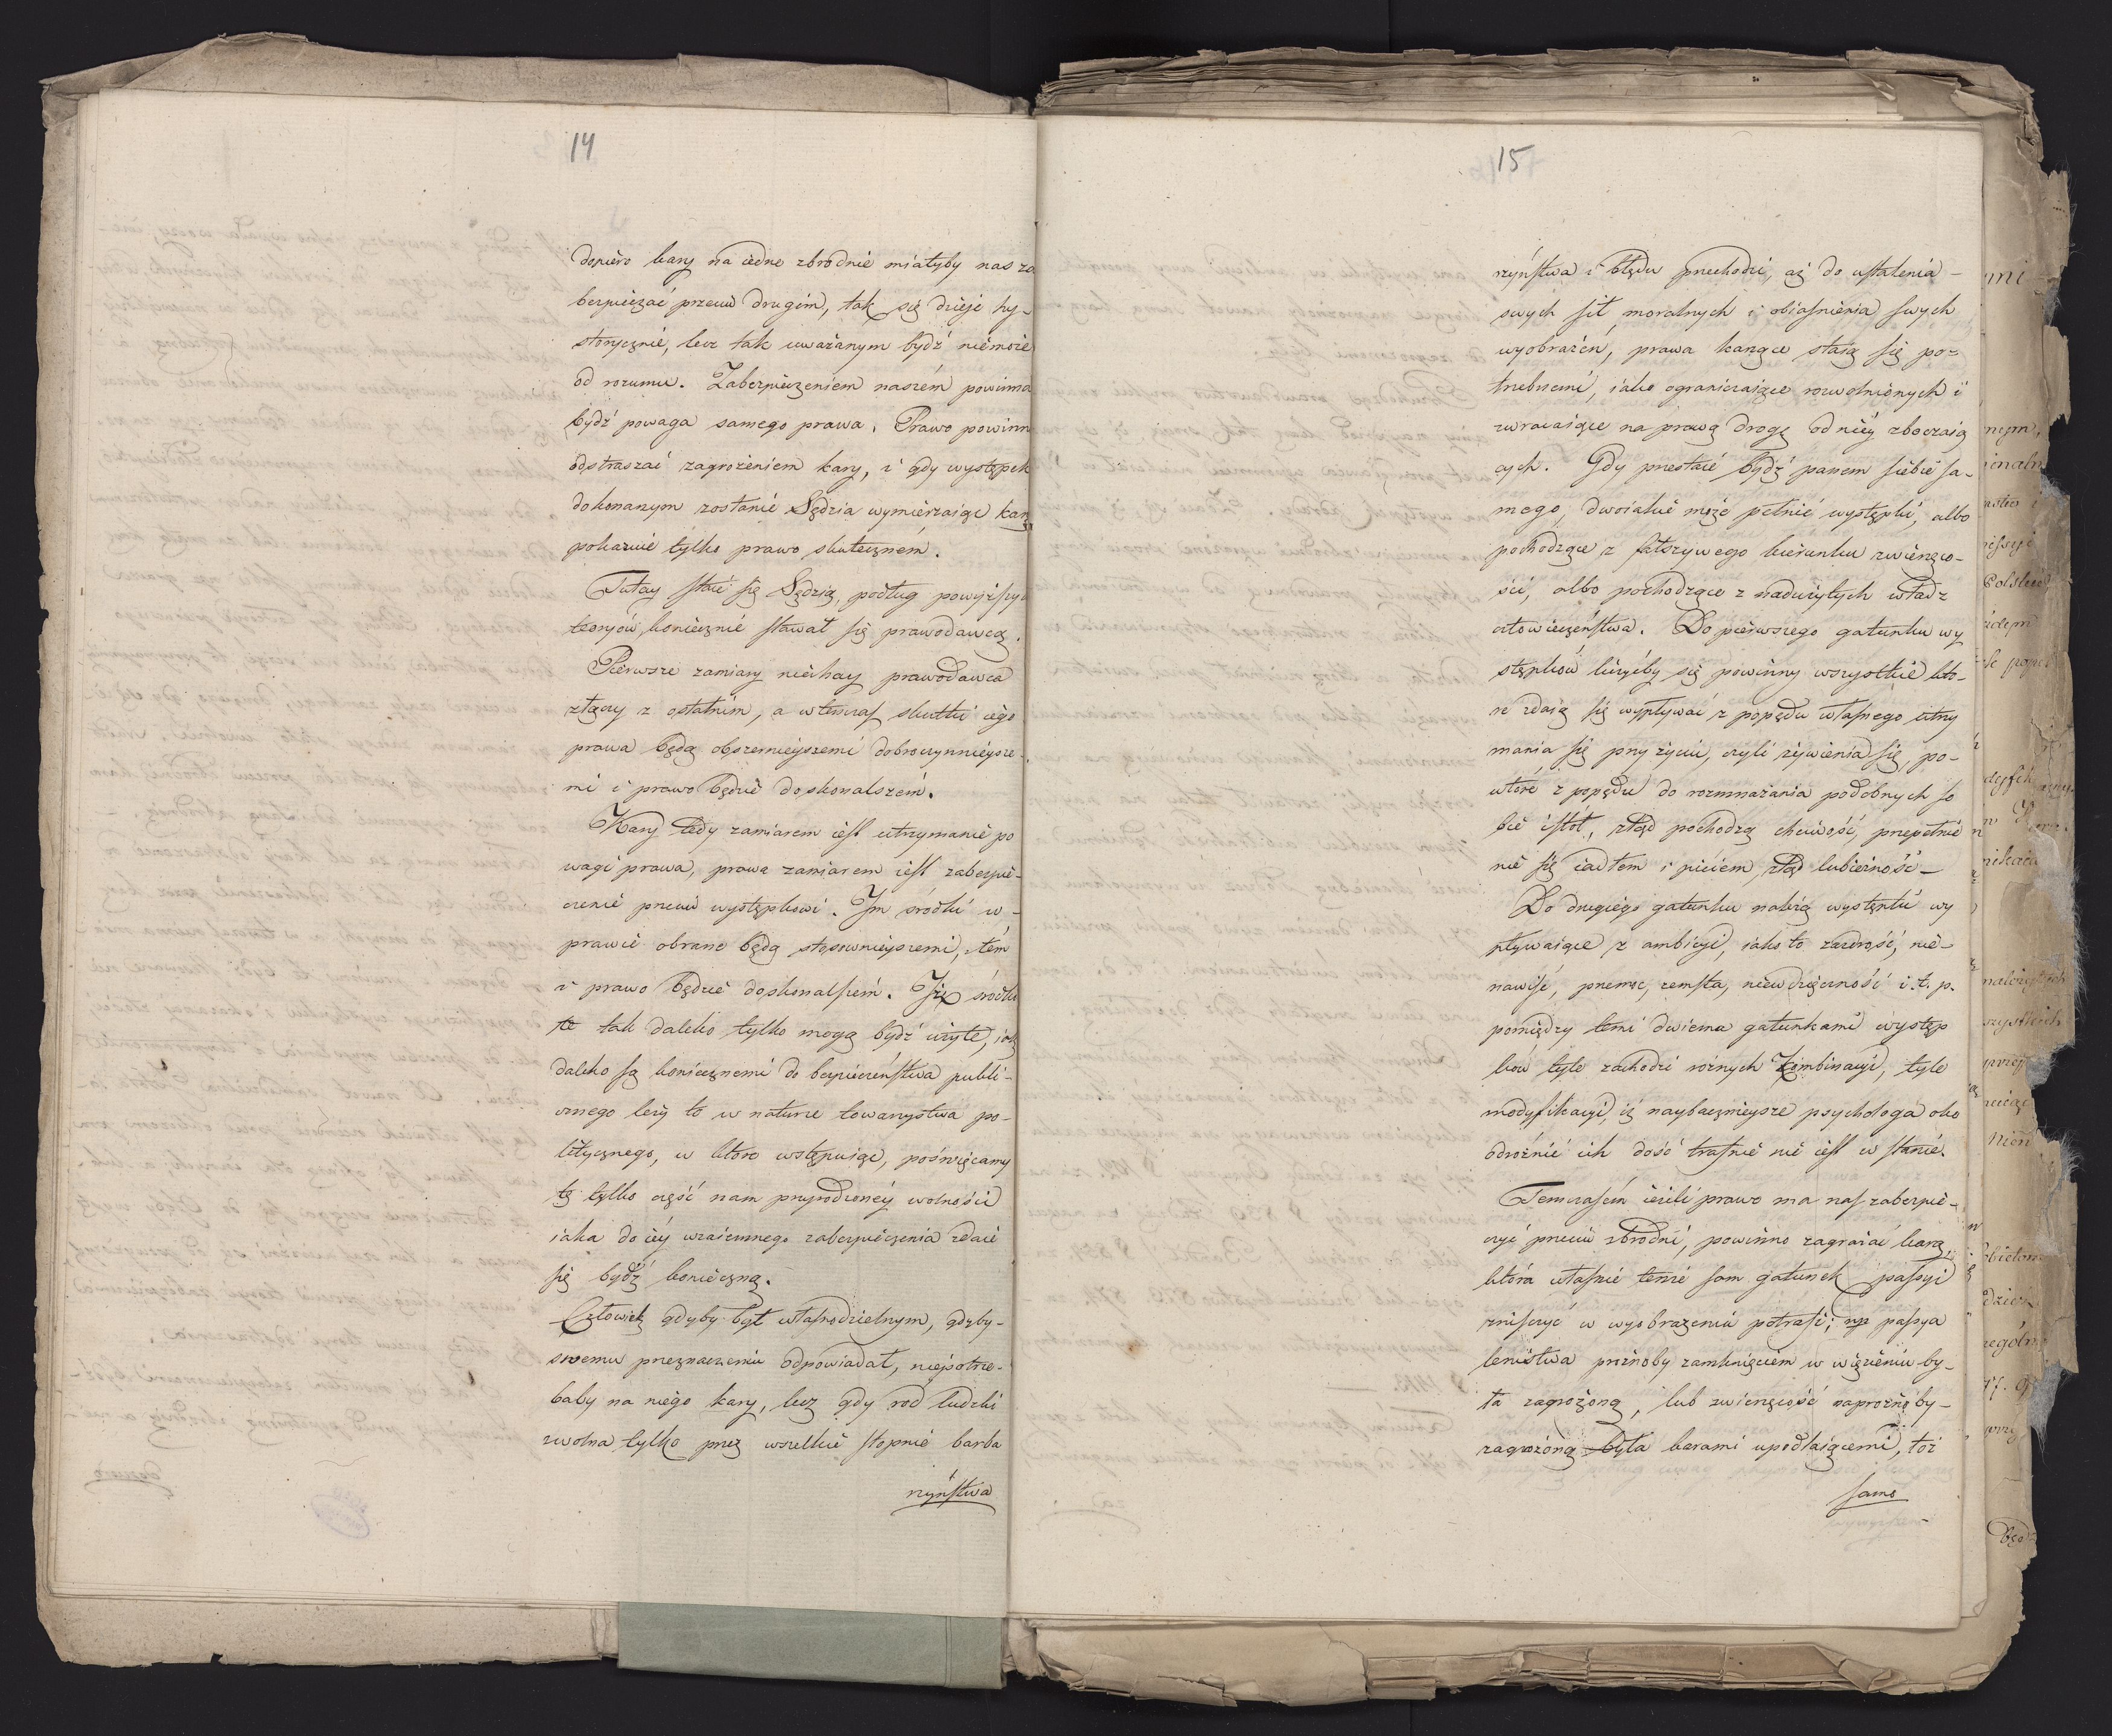 14
dopiéro kary na iedne zbrodnie miałyby nas za
bezpieczać przeciw drugim, tak się dzieje hy-
storycznie, lecz tak uważanym bydź niemoże
od rozumu. Zabezpieczeniem naszém powinna
bydź powaga samego prawa. Prawo powinn
odstraszać zagrożeniem kary, i gdy występek
dokonanym zostanie Sędzia wymierzaiąc karę
pokazuie tylko prawo skuteczném.
Tutay staie się Sędzią, podług powyższych
teoryów koniecznie stawał się prawodawcą.
Pierwsze zamiary niechay prawodawca
złączy z ostatnim, a wtenczas skutki iego
prawa będą obszernieyszemi dobroczynnieysze-
mi i prawo będzie doskonalszém.
Kary tedy zamiarem iest utrzymanie po
wagi prawa, prawa zamiarem iest zabezpie-
czenie przeciw występkowi. Im środki w-
prawie obrane będą stosownieyszemi, tém
i prawo będzie doskonalszém. Iż środki
te tak daleko tylko mogą bydź użyte, iak
daleko są koniecznemi do bezpieczeństwa publi-
cznego leży to w naturze towarzystwa po-
litycznego, w które wstępuiąc, poświęcamy
tę tylko część nam przyrodzonéy wolności
iaka do iéy wzaiemnego zabezpieczenia zdaie
się bydź konieczną.
Człowiek gdyby był własnodzielnym, gdyby-
swemu przeznaczeniu odpowiadał, niepotrze-
baby na niego kary, lecz gdy ród ludzki
zwolna tylko przez wszelkie stopnie barba
rzyństwa
15
rzyństwa i błędu przechodzi, aż do ustalenia-
swych sił moralnych i obiaśnienia swych
wyobrażeń, prawa karzące staią się po-
trzebnemi, iako ograniczaiące rozwolnionych i
zwracaiące na prawą drogę od niéy zboczaią
cych. Gdy przestaie bydź panem siebie sa-
mego, dwoiakie może pełnić występki, albo
pochodzące z fałszywego kierunku zwierzęco-
ści, albo pochodzące z nadużytych władz
człowieczeństwa. Do pierwszego gatunku wy
stępków liczyćby się powinny wszystkie któ-
re zdaią się wypływać z popędu własnego utrzy
mania się przy życiu, czyli żywienia się, po-
wtóre z popędu do rozmnażania podobnych so
bie istot, ztąd pochodzą chciwość, przepełnie
nie się iadłem i piciem, ztąd lubieżność-
Do drugiego gatunku należą występki wy
pływaiące z ambicyi, iako to zazdrość, nie-
nawiść, przemoc, zemsta, niewdzięczność i.t.p.
pomiędzy temi dwiema gatunkami występ
ków tyle zachodzi różnych kombinacyi, tyle
modyfikacyi, iż naybacznieysze psychologa oko
odróżnić ich dość trafnie nie iest w stanie.
Temczasem ieżeli prawo ma nas zabezpie-
czyć przeciw zbrodni, powinno zagrażać karą,
która właśnie tenże sam gatunek passyi
zniszczyć w wyobrażeniu potrafi; np passya
lenistwa próżnoby zamknięciem w więzieniu by-
ła zagrożoną, lub zwierzęcość napróżnoby-
zagrożoną była karami upodlaiącemi, toż
samo